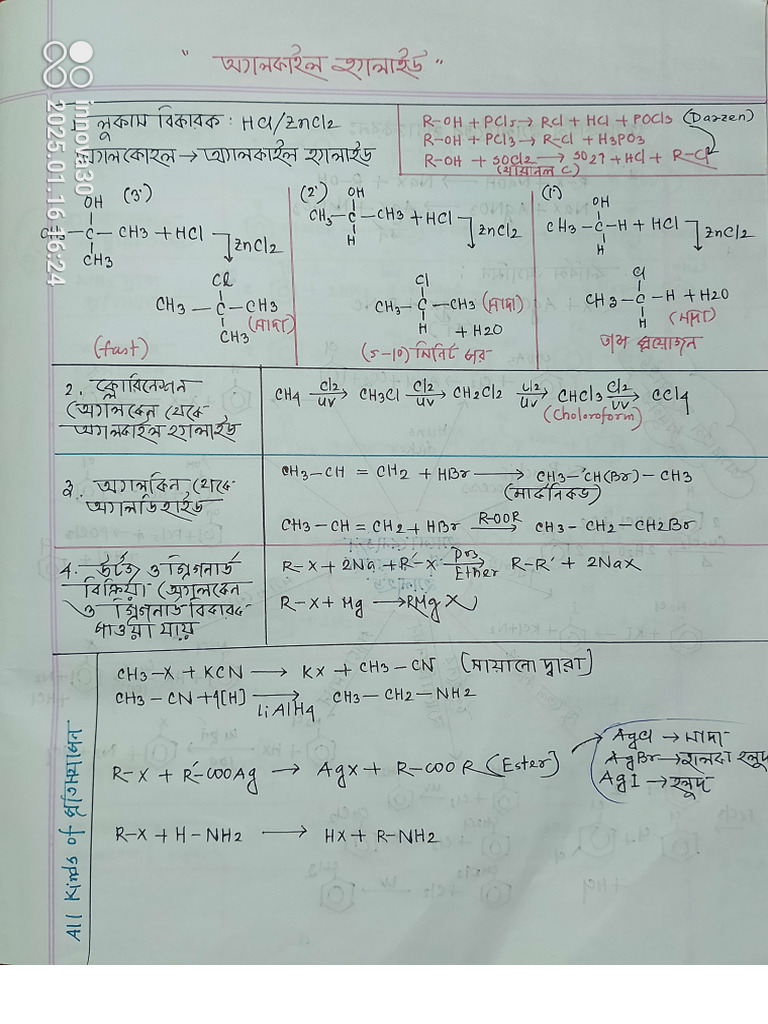 " অ্যালকাইল হ্যালাইড "
লুকাস বিকারক : HCl/ZnCl2
অ্যালকোহল → অ্যালকাইল হ্যালাইড
R-OH + PCl5 → RCl + HCl + POCl3 (Darzen)
R-OH + PCl3 → R-Cl + H3PO3
R-OH + SOCl2 → SO2↑ + HCl + R-Cl
(3°)
OH
- C - CH3 + HCl
ZnCl2
CH3
Cl
CH3 - C - CH3
CH3 (সাদা)
(fast)
(2°)
OH
CH3 - C - CH3 + HCl
ZnCl2
H
Cl
CH3 - C - CH3 (সাদা)
H + H2O
(5-10) মিনিট পর
(1°)
OH
CH3 - C - H + HCl
ZnCl2
H
Cl
CH3 - C - H + H2O
H (সাদা)
তাপ প্রয়োজন
2. ক্লোরিনেশন
(অ্যালকেন থেকে
অ্যালকাইল হ্যালাইড
CH4 Cl2/UV → CH3Cl Cl2/UV → CH2Cl2 Cl2/UV → CHCl3 Cl2/UV → CCl4
(Choloroform)
থেকে
CH3-CH = CH2 + HBr → CH3-CH(Br)-CH3
CH3-CH = CH2 + HBr R-OOR → CH3-CH2-CH2Br
4. উর্টজ ও গ্রিগনার্ড
বিক্রিয়া (অ্যালকেন
ও গ্রিগনার্ড বিকারক
পাওয়া যায়
R-X + 2Na + R'-X Ether → R-R' + 2NaX
R-X + Mg → RMgX
All Kinds of প্রতিস্থাপন
CH3-X + KCN → KX + CH3-CN (সায়ানো দ্বারা)
CH3-CN + 4[H] LiAlH4 → CH3-CH2-NH2
R-X + R'-COOAg → AgX + R-COOR (Ester)
AgCl → সাদা
AgBr → হালকা হলুদ
AgI → হলুদ
R-X + H-NH2 → HX + R-NH2
innov30
2025.01.16 16:24